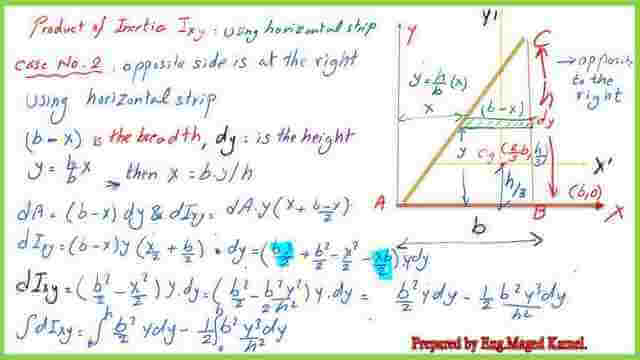 Product of Inertia Ixy: using horizontal strip
Case No-2: opposite side is at the right
using horizontal strip
(b-x) is the breadth, dy: is the height
y = h/b x then x = b·y/h
dA = (b-x) dy & dIxy = dA·y(x + (b-x)/2)
dIxy = (b-x)y(x/2 + b/2)·dy = (bx/2 + b²/2 - x²/2 - xb/2)ydy
dIxy = (b²/2 - x²/2) y·dy = (b²/2 - b²y²/2h²) y·dy = b²/2 ydy - 1/2 b²y³dy/h²
∫dIxy = ∫₀ʰ b²/2 ydy - 1/2 ∫₀ʰ b²y³dy/h²
Y
Y'
C
y = h/b (x)
→ opposite
to the
right
x
(b-x)
dy
h
y
Cg (2/3 b, h/3)
X'
h/3
(b,0)
A
B
X
b
Prepared by Eng.Maged Kamel.